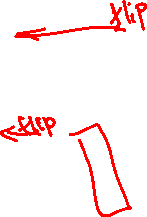 flip
flip